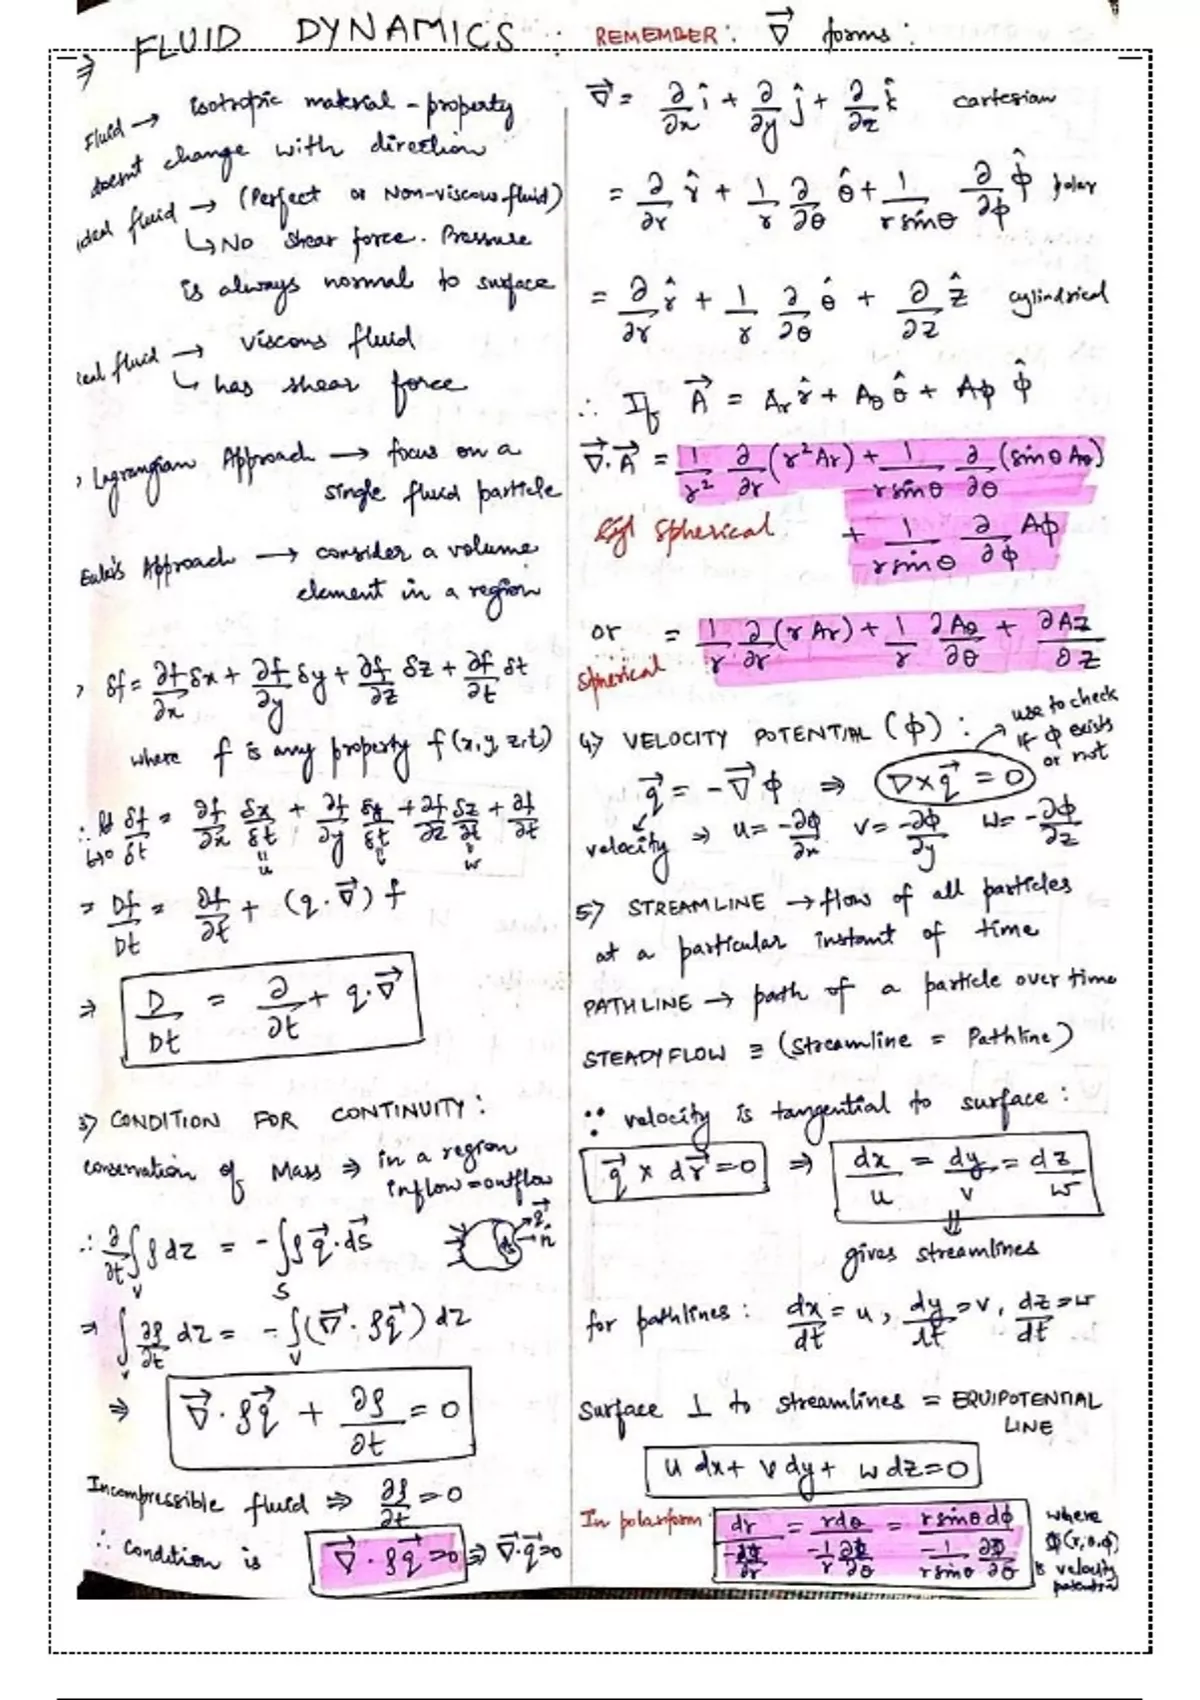 ⇒ FLUID DYNAMICS :
Fluid → isotropic material - property
doesnt change with direction
ideal fluid → (Perfect or Non-viscous fluid)
↳ No shear force. Pressure
is always normal to surface
real fluid → viscous fluid
↳ has shear force
Lagrangian Approach → focus on a
single fluid particle
Euler's Approach → consider a volume
element in a region
δf = ∂f/∂x δx + ∂f/∂y δy + ∂f/∂z δz + ∂f/∂t δt
where f is any property f(x,y,z,t)
∴ lt δt→0 δf/δt = ∂f/∂x δx/δt + ∂f/∂y δy/δt + ∂f/∂z δz/δt + ∂f/∂t
u v w
⇒ Df/Dt = ∂f/∂t + (q.∇⃗) f
⇒ D/Dt = ∂/∂t + q.∇⃗
3) CONDITION FOR CONTINUITY :
conservation of Mass ⇒ in a region
inflow = outflow
∴ ∂/∂t ∫V ρ dz = - ∫S ρq⃗.ds⃗
q⃗ n̂ ds
⇒ ∫V ∂ρ/∂t dz = - ∫V (∇⃗. ρq⃗) dz
⇒ ∇⃗. ρq⃗ + ∂ρ/∂t = 0
Incompressible fluid ⇒ ∂ρ/∂t = 0
∴ condition is ∇⃗. ρq⃗ = 0 ⇒ ∇⃗.q⃗ = 0
REMEMBER : ∇⃗ forms :
∇⃗ = ∂/∂x î + ∂/∂y ĵ + ∂/∂z k̂ cartesian
= ∂/∂r r̂ + 1/r ∂/∂θ θ̂ + 1/(r sinθ) ∂/∂ϕ ϕ̂ polar
= ∂/∂r r̂ + 1/r ∂/∂θ θ̂ + ∂/∂z ẑ cylindrical
∴ If A⃗ = Ar r̂ + Aθ θ̂ + Aϕ ϕ̂
∇⃗.A⃗ = 1/r² ∂/∂r (r²Ar) + 1/(r sinθ) ∂/∂θ (sinθ Aθ)
Spherical + 1/(r sinθ) ∂/∂ϕ Aϕ
or = 1/r ∂/∂r (r Ar) + 1/r ∂Aθ/∂θ + ∂Az/∂z
Spherical
4) VELOCITY POTENTIAL (ϕ) : use to check
if ϕ exists
or not
q⃗ = -∇⃗ϕ ⇒ ∇×q⃗ = 0
velocity ⇒ u = -∂ϕ/∂x v = -∂ϕ/∂y w = -∂ϕ/∂z
5) STREAMLINE → flow of all particles
at a particular instant of time
PATHLINE → path of a particle over time
STEADY FLOW ≡ (Streamline = Pathline)
∵ velocity is tangential to surface :
q⃗ × dr⃗ = 0 ⇒ dx/u = dy/v = dz/w
⇓
gives streamlines
for pathlines : dx/dt = u, dy/dt = v, dz/dt = w
Surface ⊥ to streamlines = EQUIPOTENTIAL
LINE
u dx + v dy + w dz = 0
In polar form: dr/(-∂ϕ/∂r) = rdθ/(-1/r ∂ϕ/∂θ) = r sinθ dϕ/(-1/(r sinθ) ∂ϕ/∂θ) where
ϕ(r,θ,ϕ)
is velocity
potential